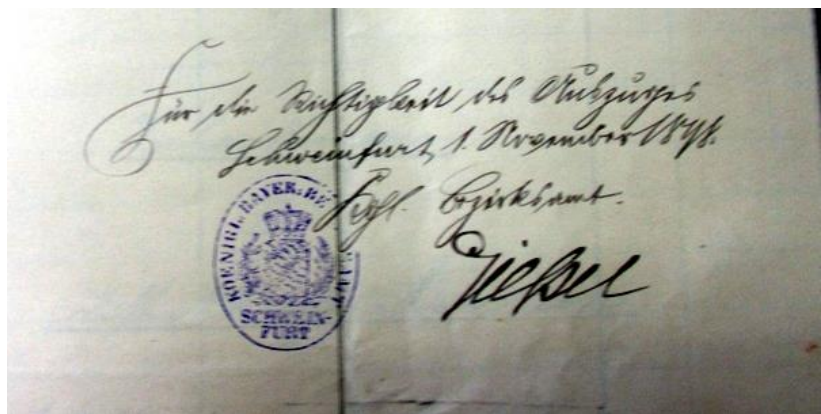 Für die Richtigkeit des Auszuges
Schweinfurt, 1. November 1898.
Kgl. Bezirksamt.
KOENIGL. BAYER. BE AMT
SCHWEIN-
FURT